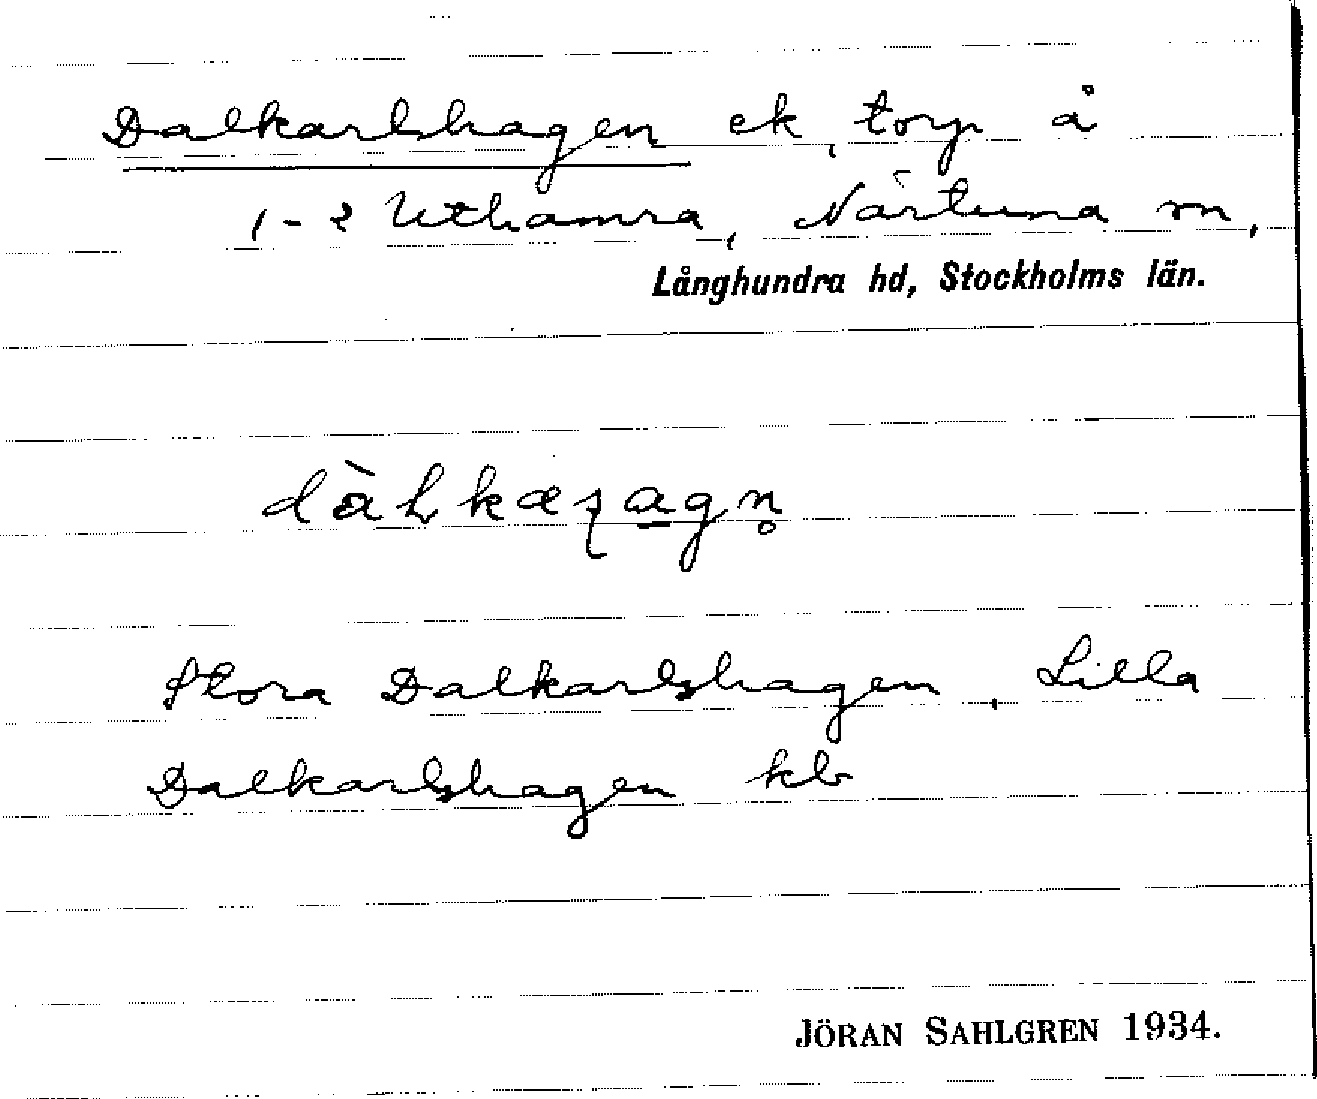 Dalkarlshagen ek, torp å
1-2 Uthamra, Närtuna sn,
Långhundra hd, Stockholms län.
Stora Dalkarlshagen, Lilla
Dalkarlshagen kb
JÖRAN SAHLGREN 1934.